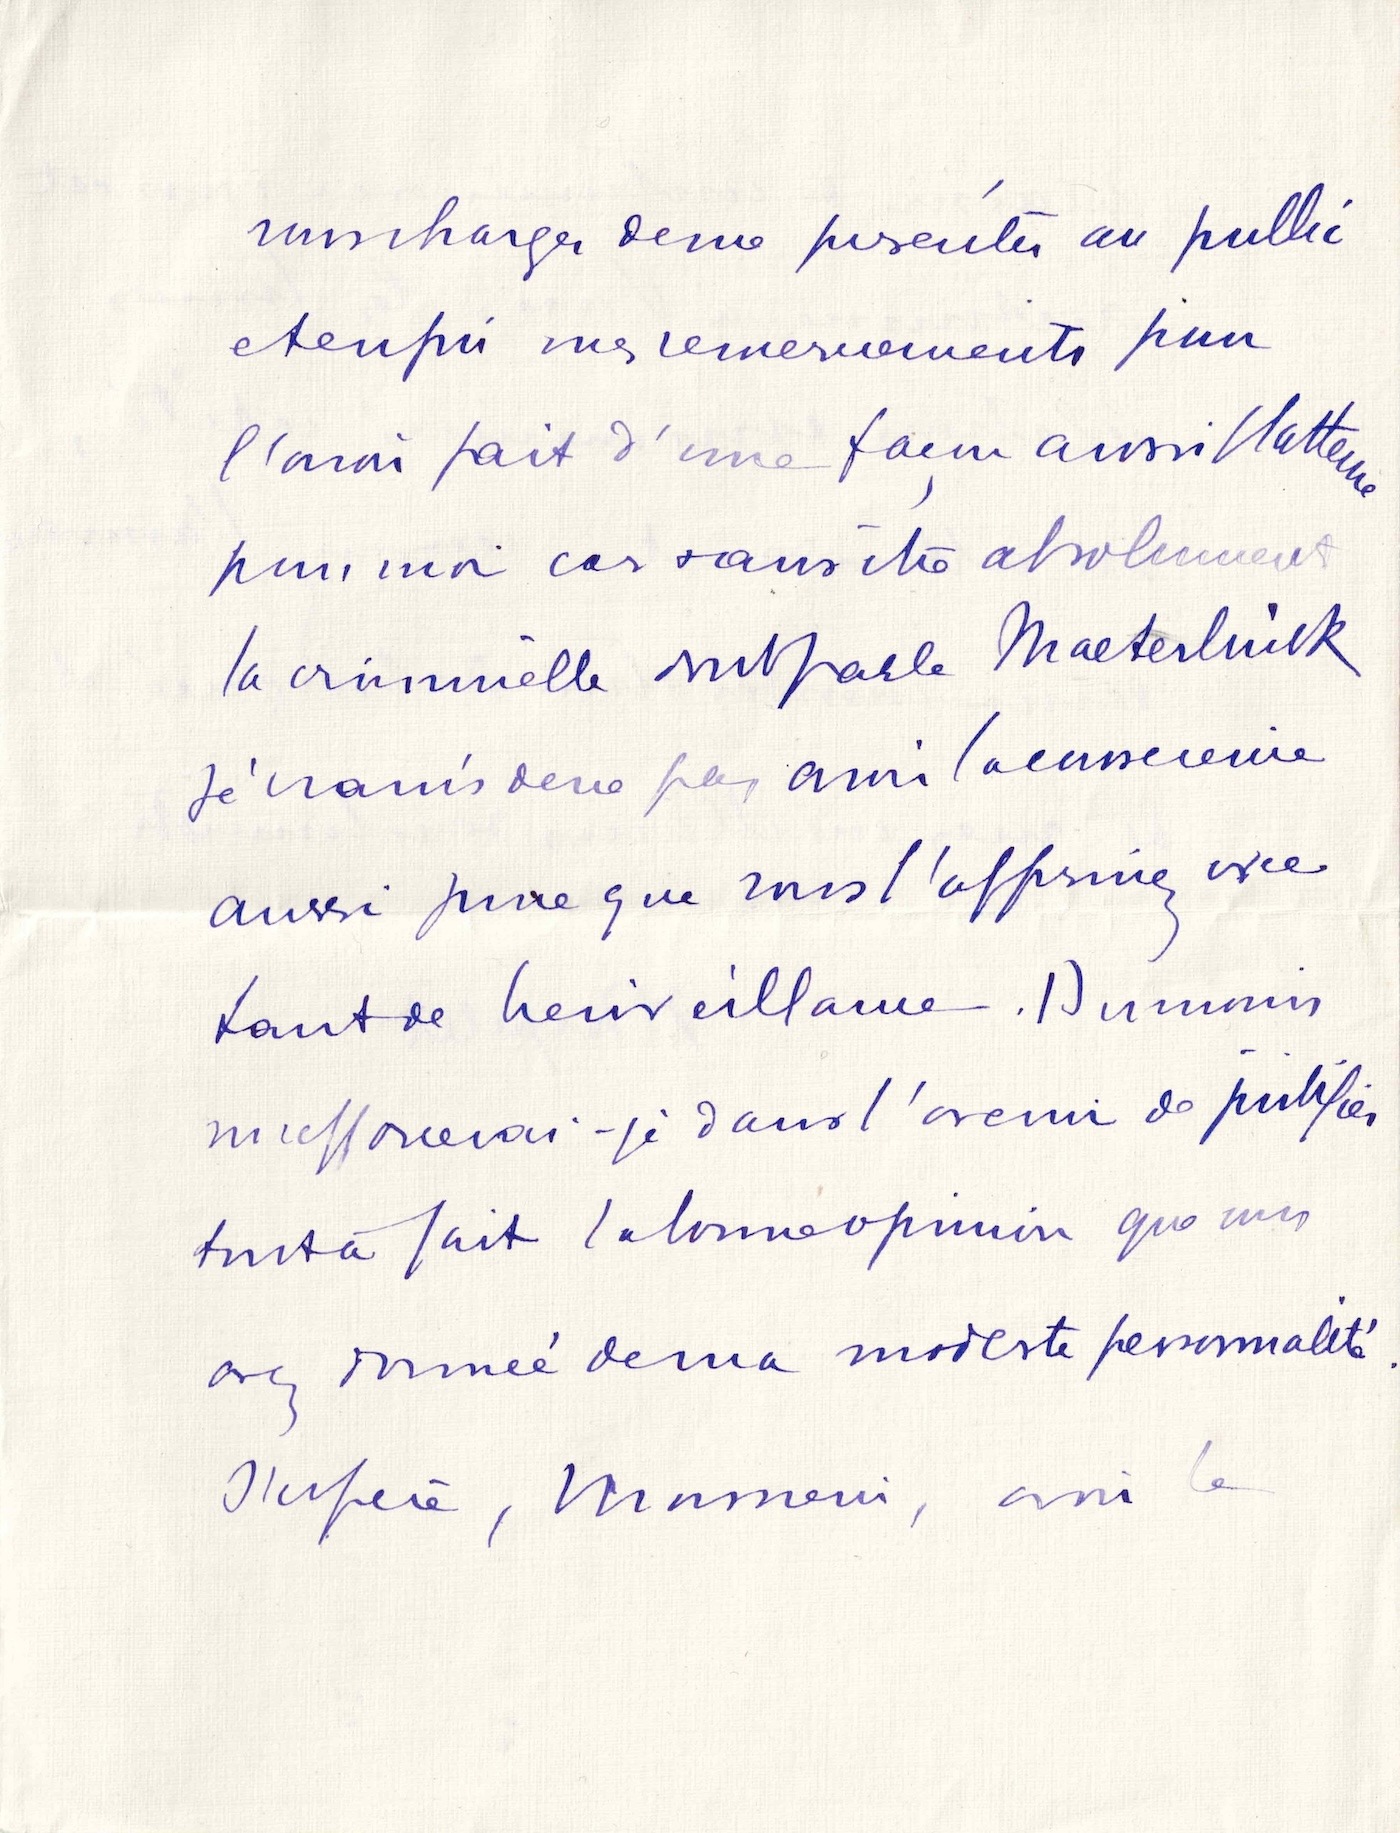 vous charger de me présenter au public
et enfin mes remerciements pour
l'avoir fait d'une façon aussi flatteuse
pour moi car sans être absolument
la criminelle dont parle Maeterlinck
je crains de ne pas avoir la conscience
aussi pure que vous l'affirmiez avec
tant de bienveillance. Du moins
m'efforcerai-je dans l'avenir de justifier
tout à fait la bonne opinion que vous
avez donnée de ma modeste personnalité.
J'espère, Monsieur, avoir le